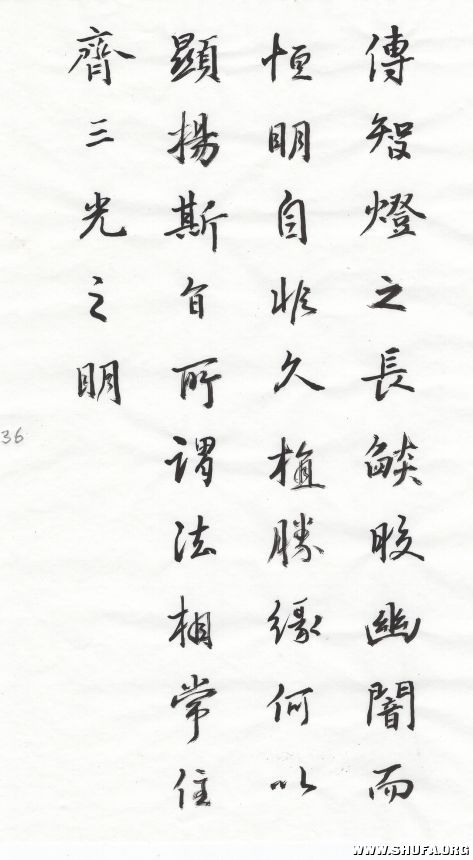 傳智燈之長燄皎幽闇而
恒明自非久植勝緣何以
顯揚斯旨所謂法相常住
齊三光之明
36
WWW.SHUFA.ORG